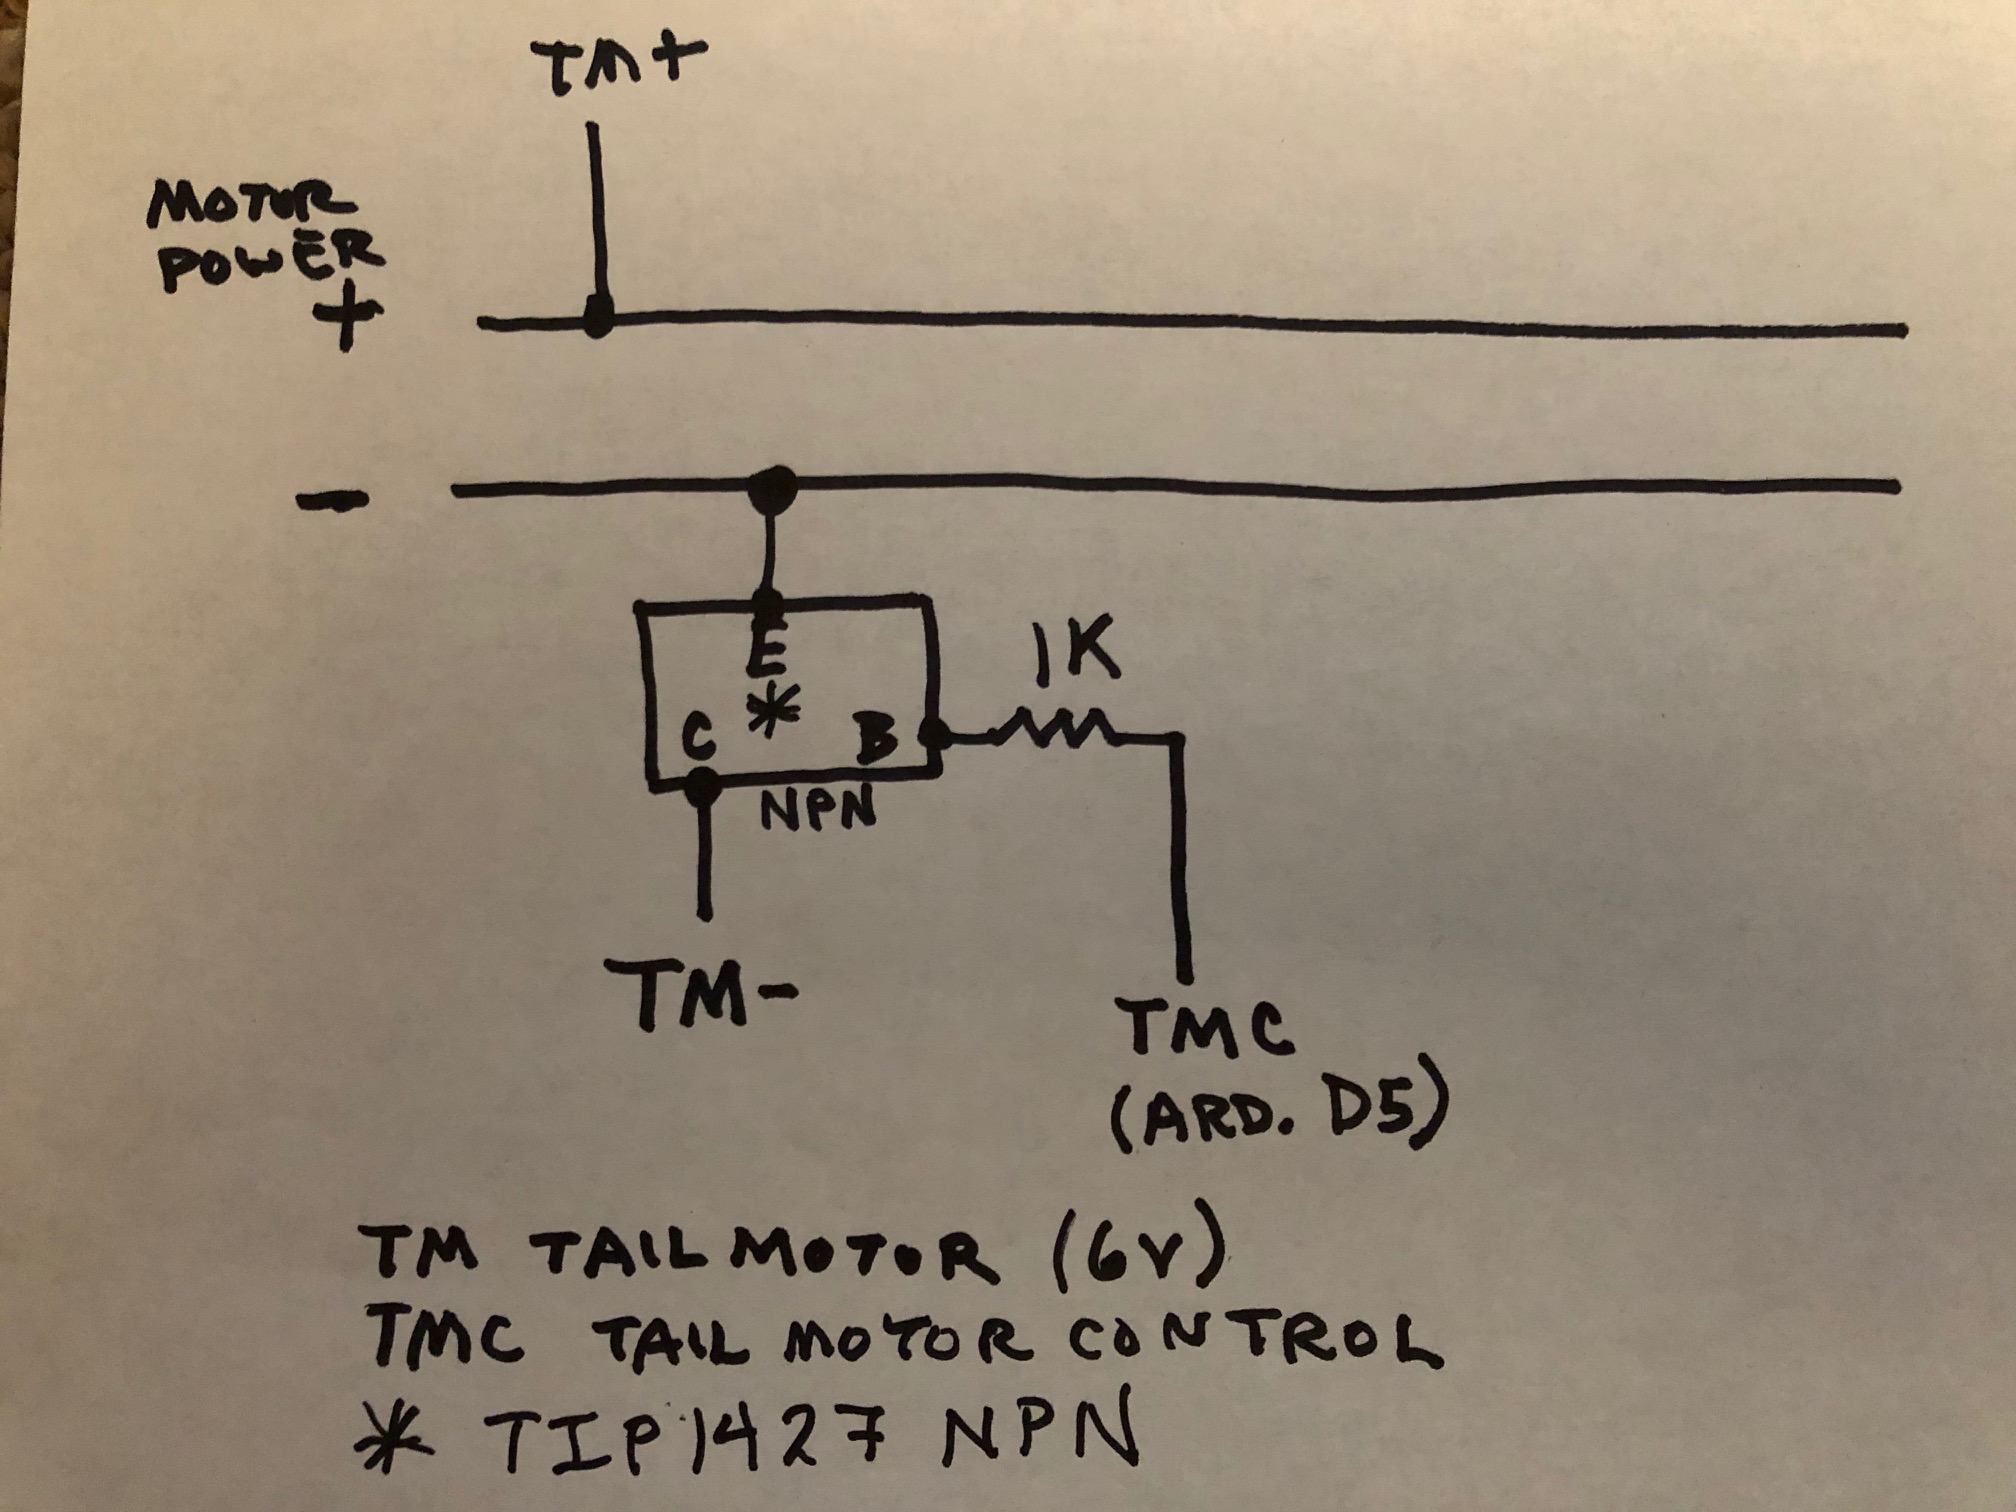 TM+
MOTOR
POWER
+
-
E
*
C B
NPN
1K
TM-
TMC
(ARD. D5)
TM TAIL MOTOR (6V)
TMC TAIL MOTOR CONTROL
* TIP1427 NPN